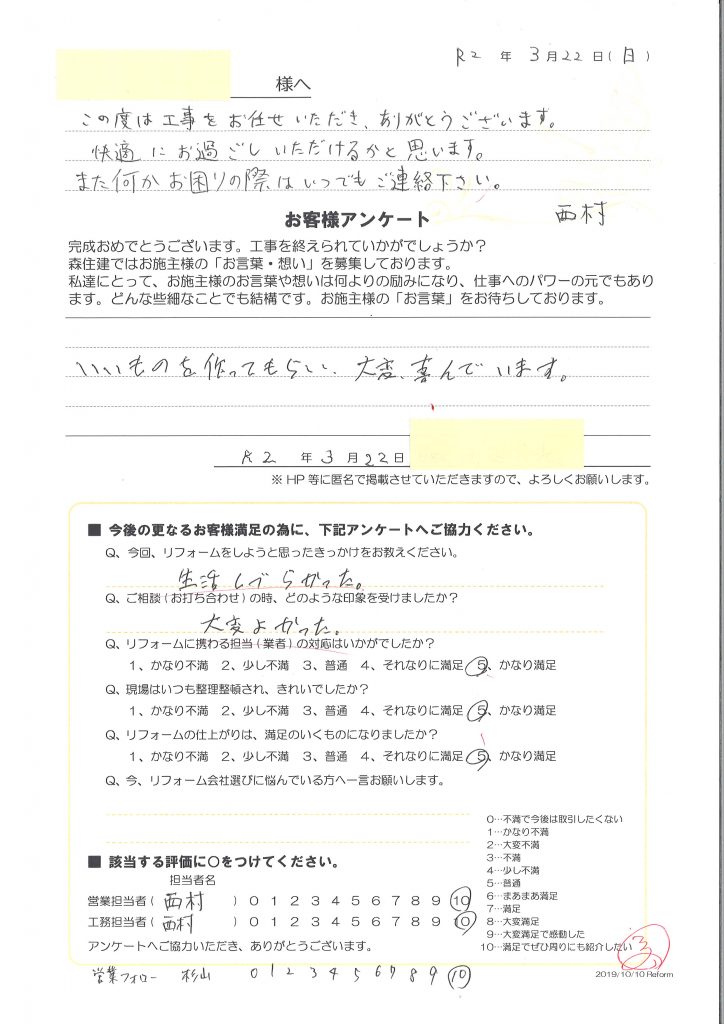 R2 年 3月22日(日)
様へ
この度は工事をお任せいただき、ありがとうございます。
快適にお過ごしいただけるかと思います。
また何かお困りの際はいつでもご連絡下さい。
西村
お客様アンケート
完成おめでとうございます。工事を終えられていかがでしょうか?
森住建ではお施主様の「お言葉・想い」を募集しております。
私達にとって、お施主様のお言葉や想いは何よりの励みになり、仕事へのパワーの元でもあり
ます。どんな些細なことでも結構です。お施主様の「お言葉」をお待ちしております。
いいものを作ってもらい、大変、喜んでいます。
R2 年 3月22日
※HP等に匿名で掲載させていただきますので、よろしくお願いします。
■ 今後の更なるお客様満足の為に、下記アンケートへご協力ください。
Q、今回、リフォームをしようと思ったきっかけをお教えください。
生活しづらかった。
Q、ご相談(お打ち合わせ)の時、どのような印象を受けましたか?
大変よかった。
Q、リフォームに携わる担当(業者)の対応はいかがでしたか?
1、かなり不満 2、少し不満 3、普通 4、それなりに満足 5、かなり満足
Q、現場はいつも整理整頓され、きれいでしたか?
1、かなり不満 2、少し不満 3、普通 4、それなりに満足 5、かなり満足
Q、リフォームの仕上がりは、満足のいくものになりましたか?
1、かなり不満 2、少し不満 3、普通 4、それなりに満足 5、かなり満足
Q、今、リフォーム会社選びに悩んでいる方へ一言お願いします。
0…不満で今後は取引したくない
1…かなり不満
2…大変不満
3…不満
4…少し不満
5…普通
6…まあまあ満足
7…満足
8…大変満足
9…大変満足で感動した
10…満足でぜひ周りにも紹介したい
■ 該当する評価に○をつけてください。
担当者名
営業担当者(西村)0 1 2 3 4 5 6 7 8 9 10
工務担当者(西村)0 1 2 3 4 5 6 7 8 9 10
アンケートへご協力いただき、ありがとうございます。
営業フォロー 杉山 0 1 2 3 4 5 6 7 8 9 10
2019/10/10 Reform